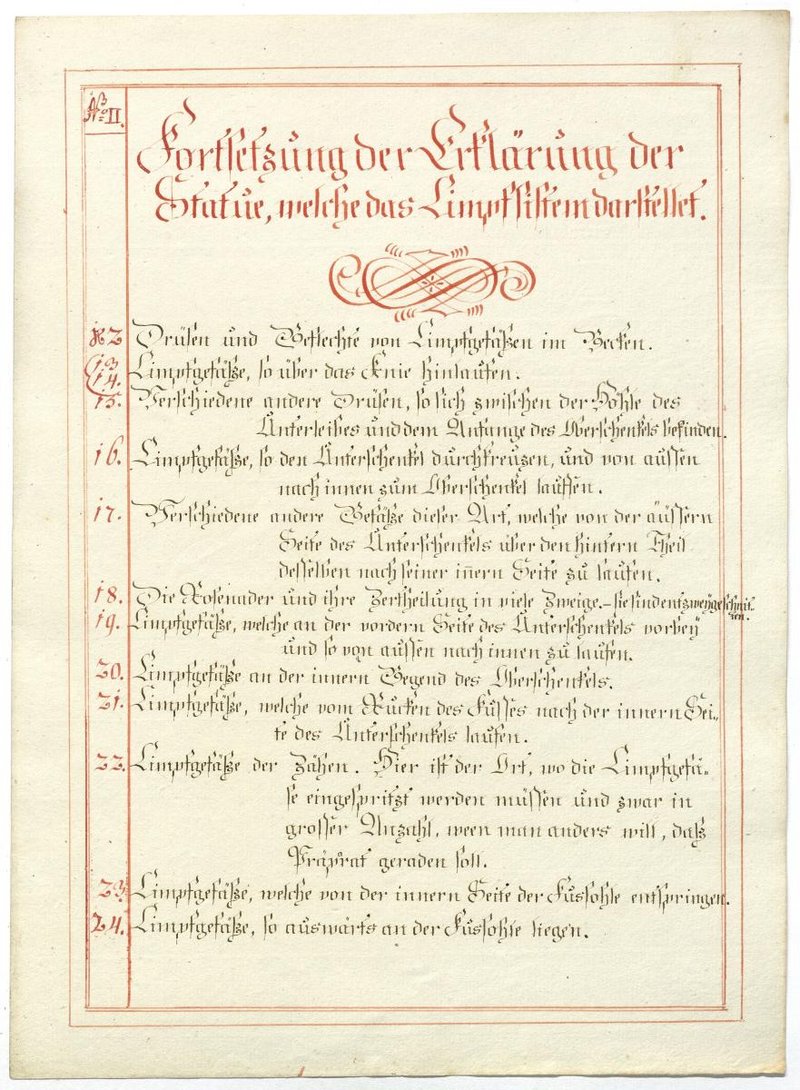 No II.
Fortsetzung der Erklärung der
Statue, welche das Limpfsistem darstellet.
12 Drüsen und Geflechte von Limpfgefäßen im Becken.
13. Limpfgefäße, so über das Knie hinlaufen.
14.
15. Verschiedene andere Drüsen, so sich zwischen der Höhle des
Unterleibes und dem Anfange des Oberschenkels befinden.
16. Limpfgefäße, so den Unterschenkel durchkreuzen, und von aussen
nach innen zum Oberschenkel lauffen.
17. Verschiedene andere Gefäße dieser Art, welche von der äussern
Seite des Unterschenkels über den hintern Theil
desselben nach seiner iñern Seite zu laufen.
18. Die Rosenader und ihre Zertheilung in viele Zweige. – sie sind entzweygeschnit-
ten.
19. Limpfgefäße, welche an der vordern Seite des Unterschenkels vorbey
und so von aussen nach innen zu laufen.
20. Limpfgefäße an der innern Gegend des Oberschenkels.
21. Limpfgefäße, welche vom Rücken des Fusses nach der innern Sei-
te des Unterschenkels laufen.
22. Limpfgefäße der Zähen. Hier ist der Ort, wo die Limpfgefä-
se eingespritzt werden müssen und zwar in
grosser Anzahl, ween man anders will, daß
Präprat geraden soll.
23. Limpfgefäße, welche von der innern Seite der Fussohle entspringen.
24. Limpfgefäße, so auswärts an der Fussohle liegen.